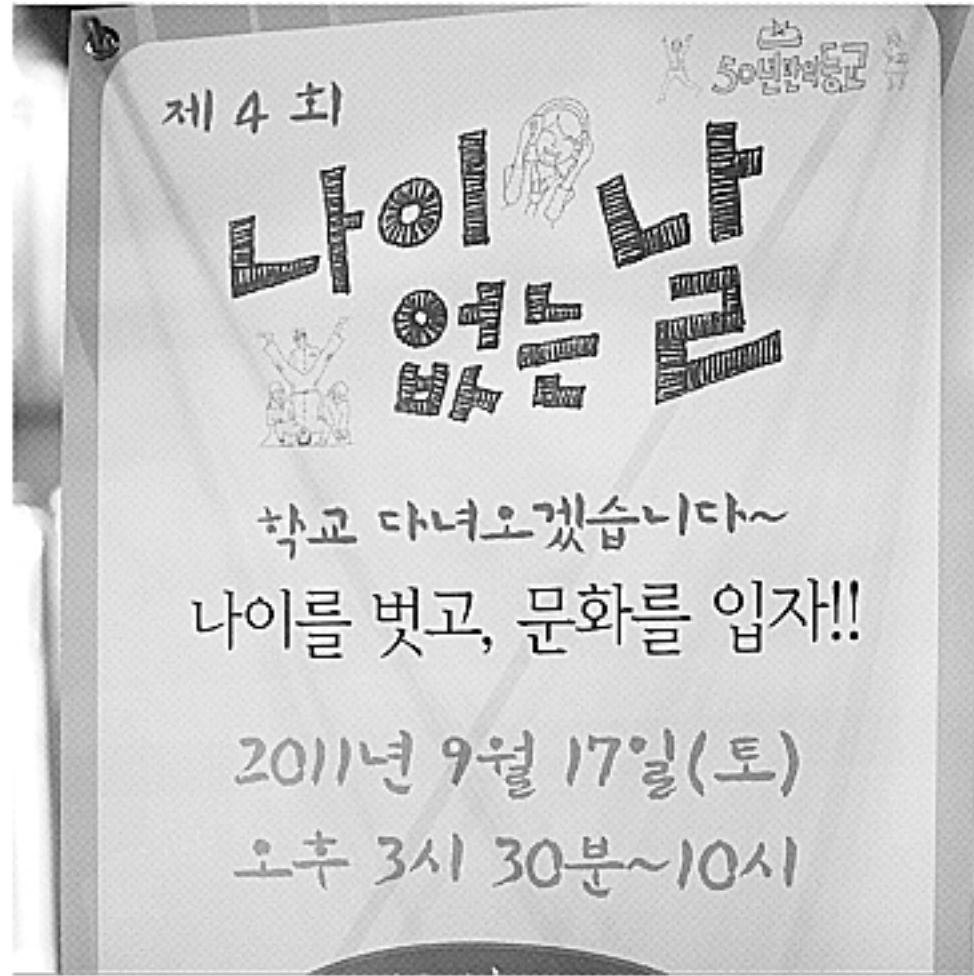 50년만의등교
제 4 회
나이 없는 날
학교 다녀오겠습니다~
나이를 벗고, 문화를 입자!!
2011년 9월 17일(토)
오후 3시 30분~10시